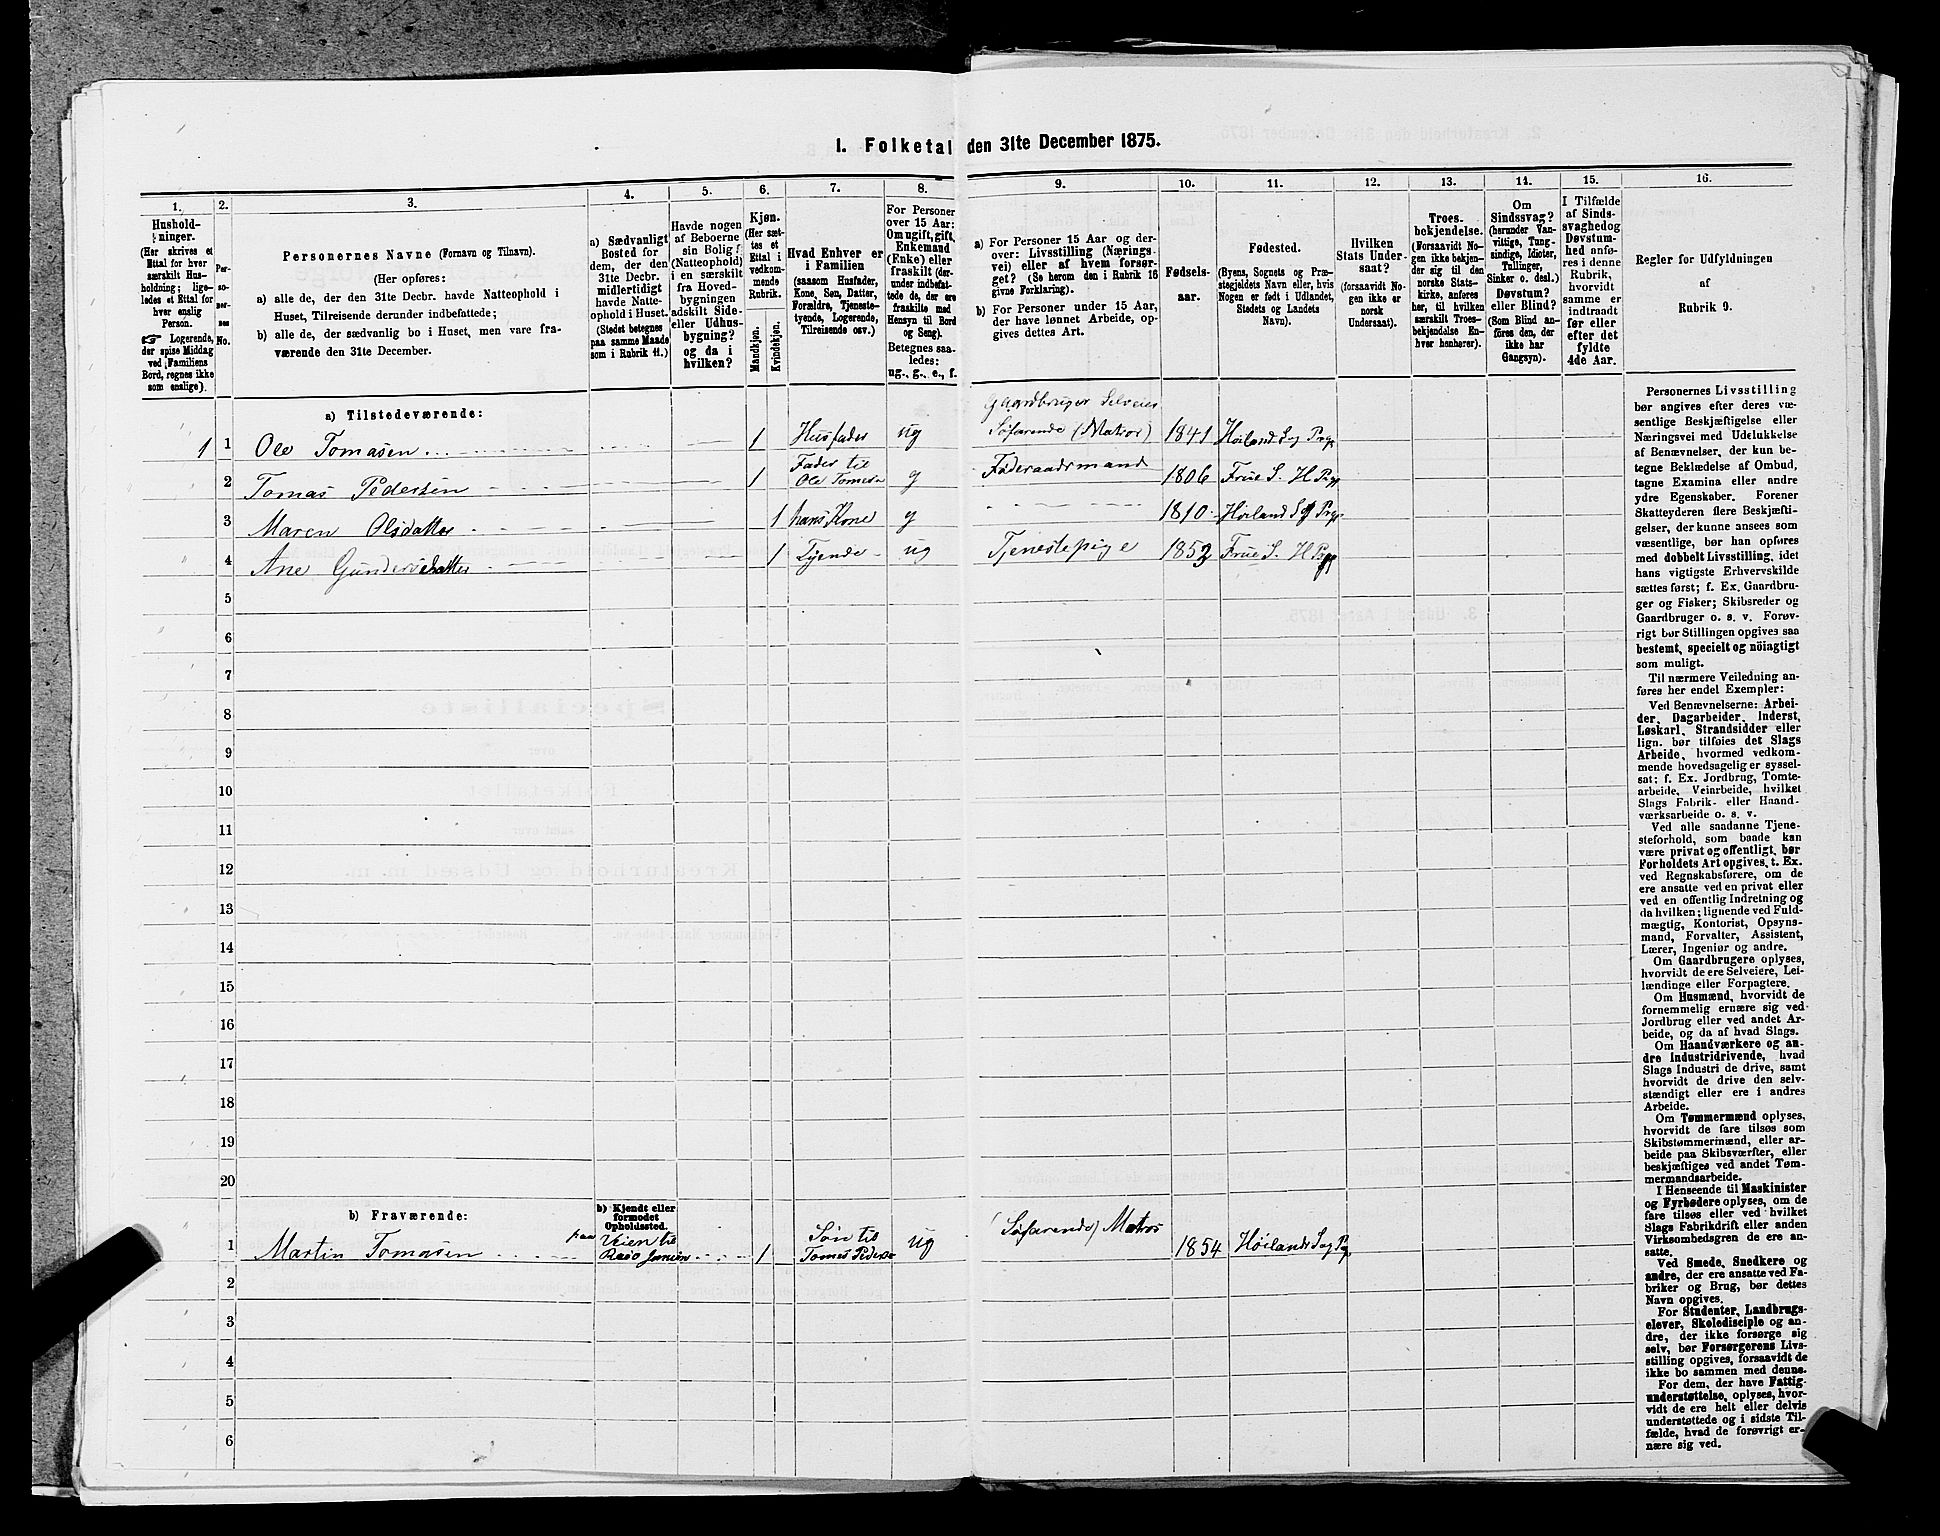 1. Folketal den 31te December 1875.
1.
Hushold-
ninger.
(Her skrives et
Ettal for hver
særskilt Hus-
holdning; lige-
ledes et Ettal for
hver enslig
Person.
☞ Logerende,
der spise Middag
ved Familiens
Bord, regnes ikke
som enslige).
2.
Per-
so-
ner-
nes
No.
3.
Personernes Navne (Fornavn og Tilnavn).
(Her opføres:
a) alle de, der den 31te Decbr. havde Natteophold i
Huset, Tilreisende derunder indbefattede;
b) alle de, der sædvanlig bo i Huset, men vare fra-
værende den 31te December.
4.
a) Sædvanligt
Bosted for
dem, der den
31te Decbr.
midlertidigt
havde Natte-
ophold i Huset.
(Stedet betegnes
paa samme Maade
som i Rubrik 11.)
5.
Havde nogen
af Beboerne
sin Bolig
(Natteophold)
i en særskilt
fra Hoved-
bygningen
adskilt Side-
eller Udhus-
bygning?
og da i
hvilken?
6.
Kjøn.
(Her sæt-
tes et
Ettal i
vedkom-
mende
Rubrik.
Mandkjøn.
Kvindekjøn.
7.
Hvad Enhver er
i Familien
(saasom Husfader,
Kone, Søn, Datter,
Forældre, Tjeneste-
tyende, Logerende,
Tilreisende osv.)
8.
For Personer
over 15 Aar:
Om ugift, gift,
Enkemand
(Enke) eller
fraskilt (der-
under indbefat-
tede de, der ere
fraskilte med
Hensyn til Bord
og Seng).
Betegnes saa-
ledes:
ug., g., e., f.
9.
a) For Personer 15 Aar og der-
over: Livsstilling (Nærings-
vei) eller af hvem forsør-
get? (Se herom den i Rubrik 16
givne Forklaring).
b) For Personer under 15 Aar,
der have lønnet Arbeide, op-
gives dettes Art.
10.
Fødsels-
aar.
11.
Fødested.
(Byens, Sognets og Præ-
stegjeldets Navn eller, hvis
Nogen er født i Udlandet,
Stedets og Landets
Navn).
12.
Hvilken
Stats Under-
saat?
(forsaavidt No-
gen ikke er
norsk
Undersaat).
13.
Troes-
bekjendelse.
(Forsaavidt No-
gen ikke bekjen-
der sig til den
norske Stats-
kirke, anføres
her, til hvilken
særskilt Troes-
bekjendelse En-
hver henhører).
14.
Om
Sindssvag?
(herunder Van-
vittige, Tung-
sindige, Idioter,
Tullinger,
Sinker o. desl.)
Døvstum?
eller Blind?
(Som Blind an-
føres den, der
ikke har
Gangsyn).
15.
I Tilfælde
af Sinds-
svaghed og
Døvstum-
hed anfø-
res i denne
Rubrik,
hvorvidt
samme er
indtraadt
før eller
efter det
fyldte
4de Aar.
16.
Regler for Udfyldningen
af
Rubrik 9.
a) Tilstedeværende:
Gaardbruger Selveier
1 1 Ole Tomasen 1 Husfader ug Søfarende (Matros) 1841 Høiland S og Prgj
2 Tomas Pedersen 1 Fader til Ole Tomesn g Føderaadsmand 1806 Frue S. H Prgj
3 Maren Olsdatter 1 hans Kone g 1810 Høiland S og Prgj
4 Ane Gundersdatter 1 Tjende ug Tjenestepige 1853 Frue S. H Prgj
5
6
7
8
9
10
11
12
13
14
15
16
17
18
19
20
b) Fraværende:
b) Kjendt eller
formodet
Opholdssted.
1 Martin Tomasen paa Veien til 1 Søn til Tomas Pederse ug (Søfarende) Matros 1854 Høiland S og Pg
2
3
4
5
6
Personernes Livsstilling
bør angives efter deres væ-
sentlige Beskjæftigelse eller
Næringsvei med Udelukkelse
af Benævnelser, der kun be-
tegne Beklædelse af Ombud,
tagne Examina eller andre
ydre Egenskaber. Forener
Skatteyderen flere Beskjæfti-
gelser, der kunne ansees som
væsentlige, bør han opføres
med dobbelt Livsstilling, idet
hans vigtigste Erhvervskilde
sættes først; f. Ex. Gaardbru-
ger og Fisker; Skibsreder og
Gaardbruger o. s. v. Forøv-
rigt bør Stillingen opgives saa
bestemt, specielt og nöiagtigt
som muligt.
Til nærmere Veiledning an-
føres her endel Exempler:
Ved Benævnelserne: Arbei-
der, Dagarbeider, Inderst,
Løskarl, Strandsidder eller
lign. bør tilføies det Slags
Arbeide, hvormed vedkom-
mende hovedsagelig er syssel-
sat; f. Ex. Jordbrug, Tomte-
arbeide, Veiarbeide, hvilket
Slags Fabrik- eller Haand-
værksarbeide o. s. v.
Ved alle saadanne Tjene-
steforhold, som baade kan
være privat og offentligt, bør
Forholdets Art opgives, t. Ex.
ved Regnskabsførere, om de
ere ansatte ved en privat eller
ved en offentlig Indretning og
da hvilken; lignende ved Fuld-
mægtig, Kontorist, Opsyns-
mand, Forvalter, Assistent,
Lærer, Ingeniør og andre.
Om Gaardbrugere oplyses,
hvorvidt de ere Selveiere, Lei-
lændinge eller Forpagtere.
Om Husmænd, hvorvidt de
fornemmelig ernære sig ved
Jordbrug eller ved andet Ar-
beide, og da af hvad Slags.
Om Haandværkere og an-
dre Industridrivende, hvad
Slags Industri de drive, samt
hvorvidt de drive den selv-
stændigt eller ere i andres
Arbeide.
Om Tømmermænd oplyses,
hvorvidt de fare tilsøs som
Skibstømmermænd, eller ar-
beide paa Skibsværfter, eller
beskjæftiges ved andet Tøm-
mermandsarbeide.
I Henseende til Maskinister
og Fyrbødere oplyses, om de
fare tilsøs eller ved hvilket
Slags Fabrikdrift eller anden
Virksomhedsgren de ere an-
satte.
Ved Smede, Snedkere og
andre, der ere ansatte ved Fa-
briker og Brug, bør dettes
Navn opgives.
For Studenter, Landbrugs-
elever, Skoledisciple og an-
dre, der ikke forsørge sig
selv, bør Forsørgerens Livs-
stilling opgives, forsaavidt de
ikke bo sammen med denne.
For dem, der have Fattig-
understøttelse, oplyses, hvor-
vidt de ere helt eller delvis
understøttede og i sidste Til-
fælde, hvad de forøvrigt er-
nære sig ved.